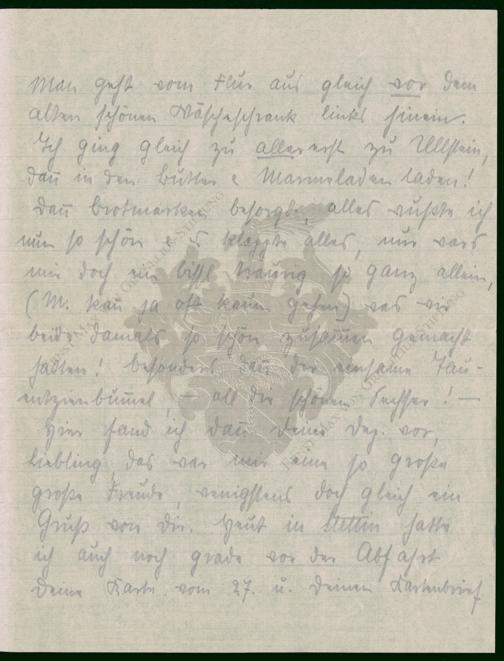 Man geht vom Flur aus gleich vor dem
alten schönen Wäscheschrank links hinein.
Ich ging gleich zu allererst zu Ullstein,
dañ in den Butter & Marmeladen laden!
Dañ Brotmarken besorgen, alles wußte ich
nun so schön & es klappte alles, nur wars
mir doch ein bissl traurig so ganz allein,
(M. kañ ja oft kaum gehen) was wir
beide damals so schön zusam̄en gemacht
hatten! besonders dañ der einsame Tau-
entzienbum̄el, – all die schönen Sechser! –
Hier fand ich dañ Deine Dez. vor,
Liebling, das war mir eine so große
große Freude, wenigstens doch gleich ein
Gruß von Dir. Heut in Stettin hatte
ich auch noch grade vor der Abfahrt
Deine Karte vom 27. u. Deinen Kartenbrief